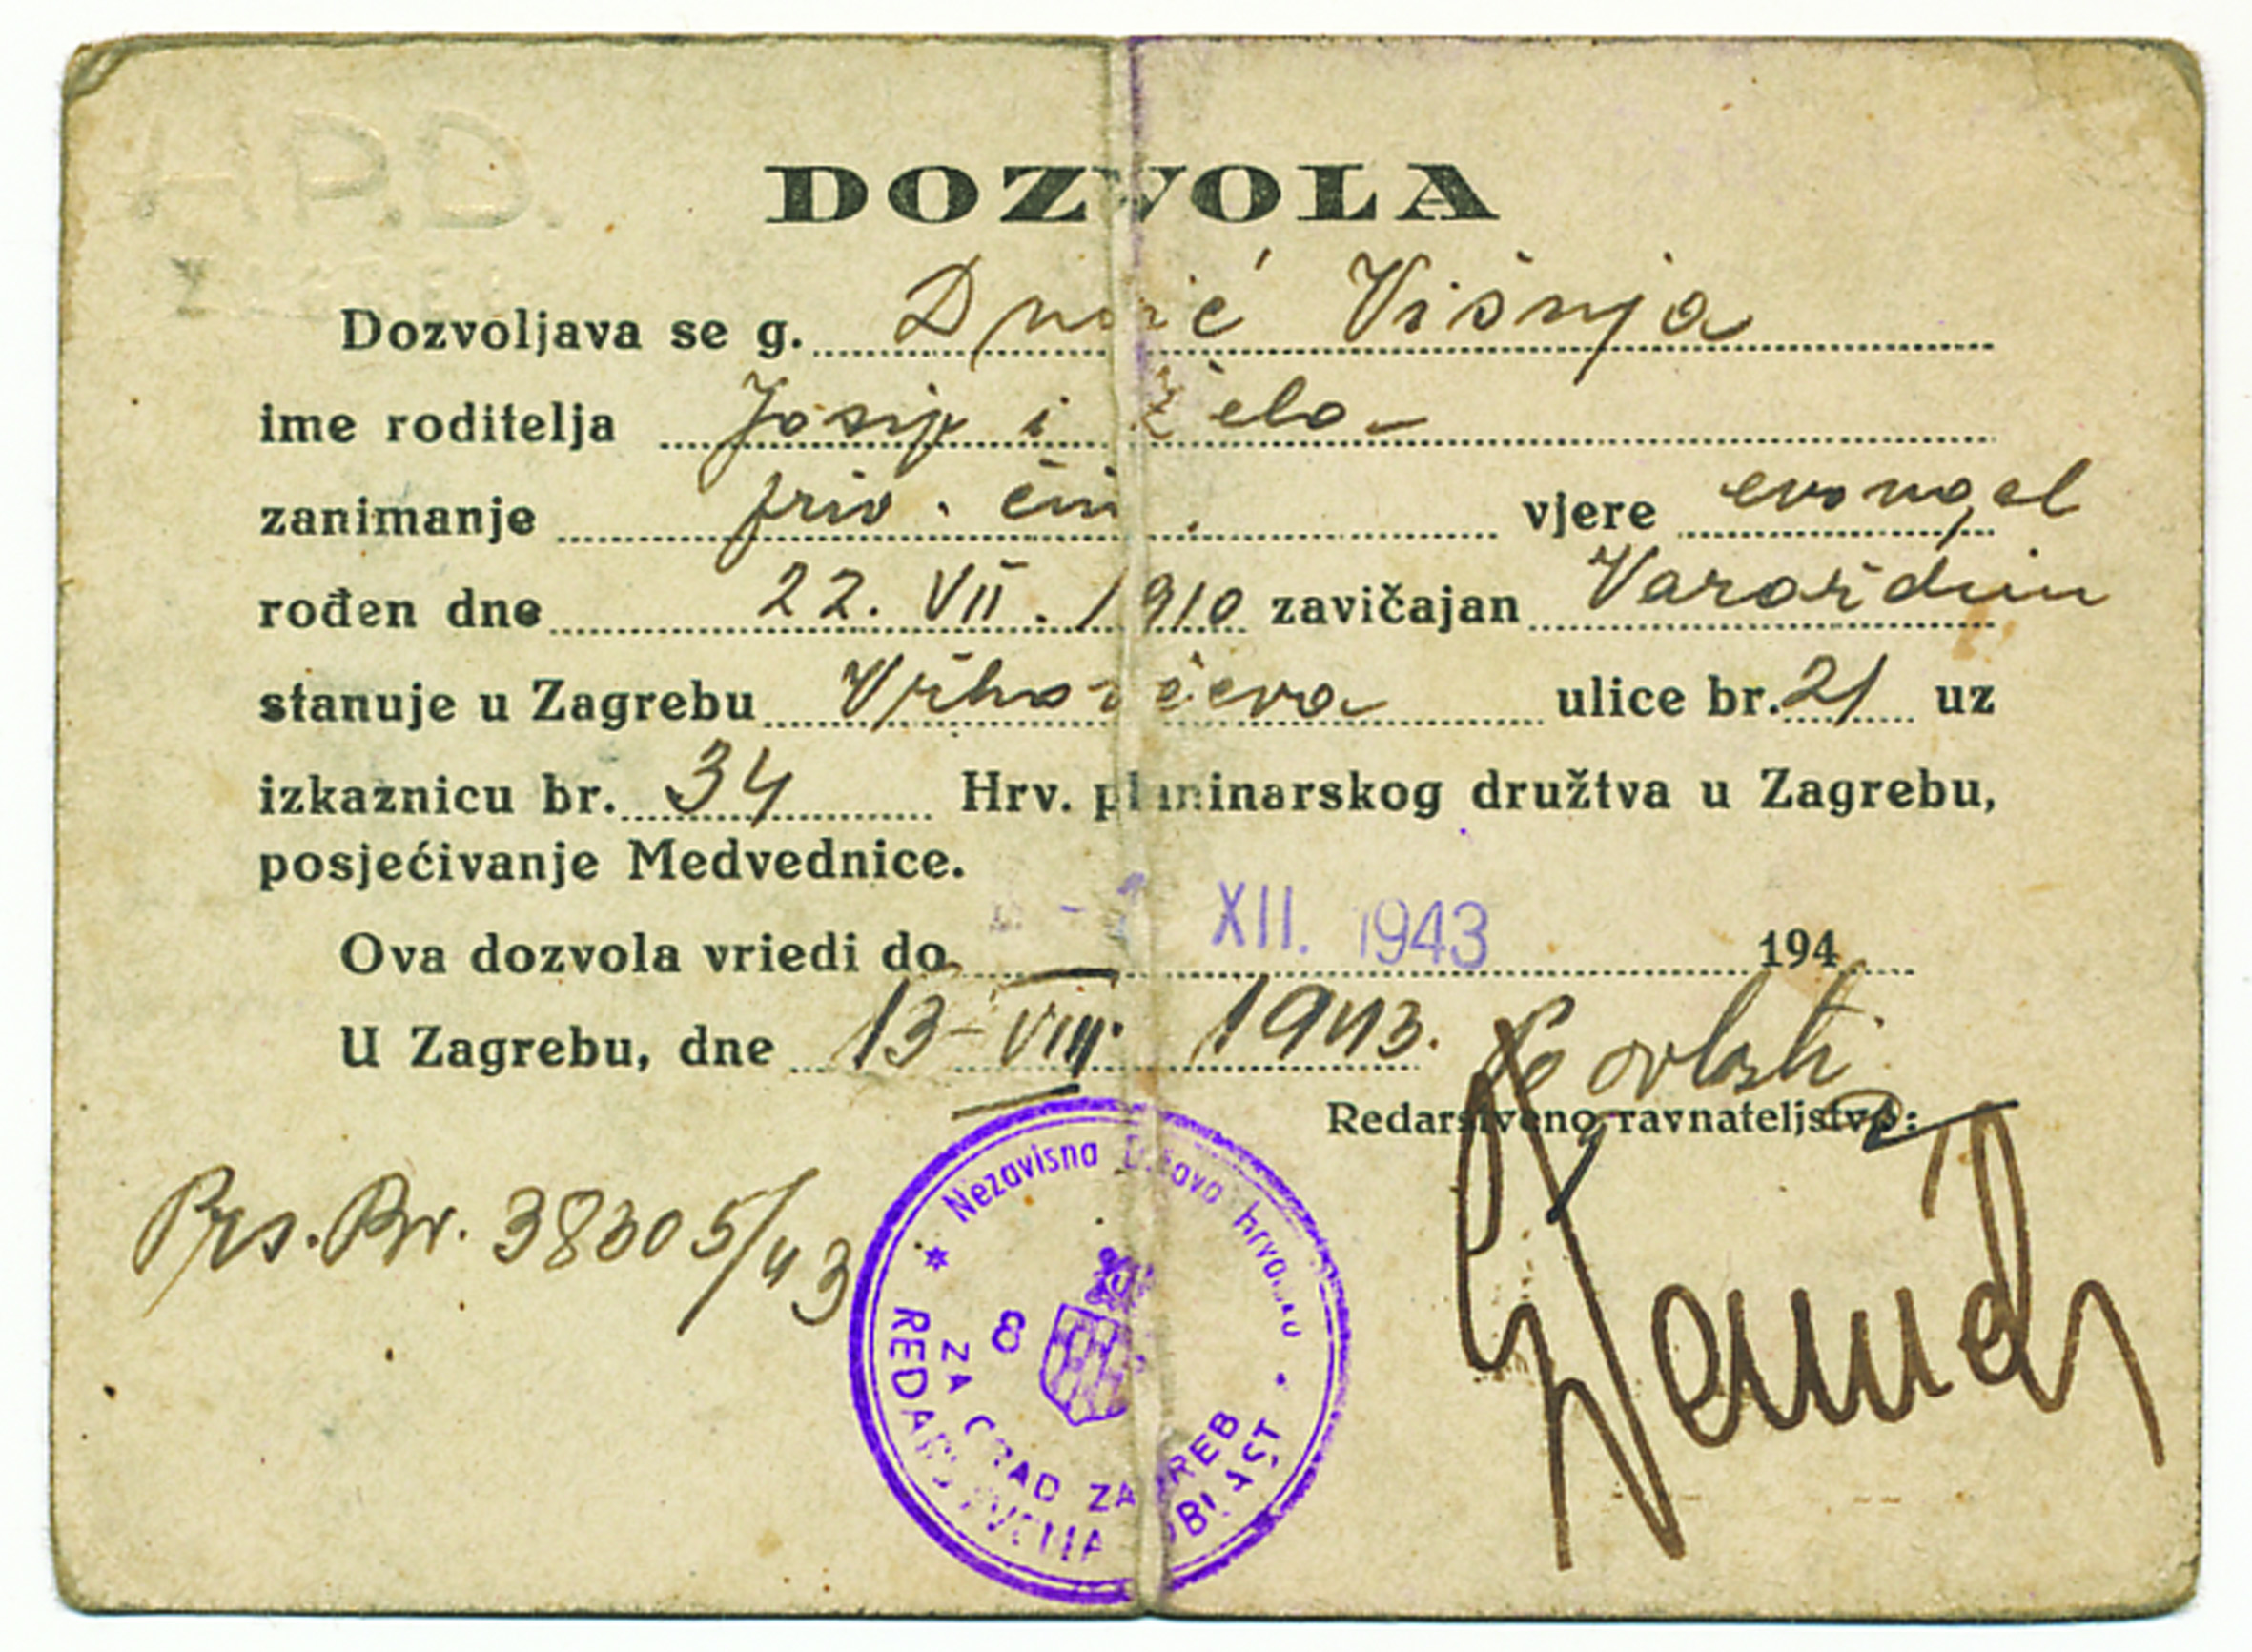 H.P.D.
ZAGREB
DOZVOLA
Dozvoljava se g. Višnja
ime roditelja Josip i Žela
zanimanje priv. čin. vjere evangel
rođen dne 22. VII. 1910 zavičajan Varaždin
stanuje u Zagrebu Vrhovčeva ulice br. 21 uz
izkaznicu br. 34 Hrv. planinarskog družtva u Zagrebu,
posjećivanje Medvednice.
Ova dozvola vriedi do XII. 1943 194
U Zagrebu, dne 13-VIII. 1943.
Po ovlasti
Redarstveno ravnateljstvo:
Prs. Br. 38305/43
Nezavisna Država hrvatska
8
ZA GRAD ZAGREB
REDARSTVENA OBLAST